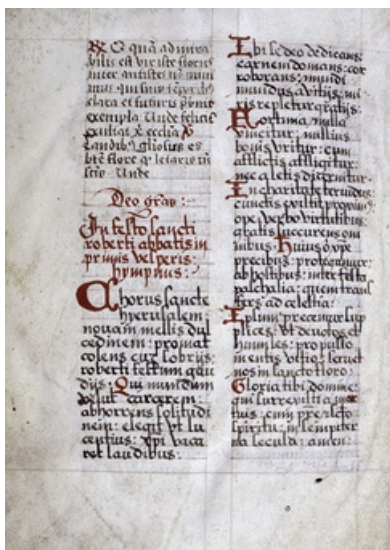 ℟ O quā admira
bilis est vir iste florus
inter antistites nō mini
mus qui suis tēporib9
clara et futuris ponit
exempla Unde felicit
exultat ecclia ℣
Laudib9 gliosus es
btē flore qr letaris in
scris Unde
Deo gras:
In festo sancti
roberti abbatis in
primis vesperis
hympnus:
Chorus sancte
hyerusalem:
nouam mellis dul
cedinem: promat
colens cuz sobrijs:
roberti festum gau
dijs: Qui mundum
velut carcerem:
abhorrens solitudi
nem: elegit vt lu
centius: xpi vaca
ret laudibus:
Ibi se deo dedicans
carnem domans: cor
roborans: mundi
mundus a vitijs: mi
ris repletur gratijs:
nulla
vincitur: nullius
bonis vritur: cum
afflictis affligitur
nec a letis
In charitate feruidus
cunctis propitius
ope verbo virtutibus
gratis succurens om
nibus: Huius o xpe
precibus: protegamur
ab hostibus: inter festa
paschalia: quem trans
fers ad celestia:
Ipsum precemur sup
plices: vt deuotos et
humiles: propulso
mentis seruet
nos in sancto floro:
Gloria tibi domine
qui surrexisti a mor
tuis: cum pre sctō
spiritu: in sempiter
na secula: amen: